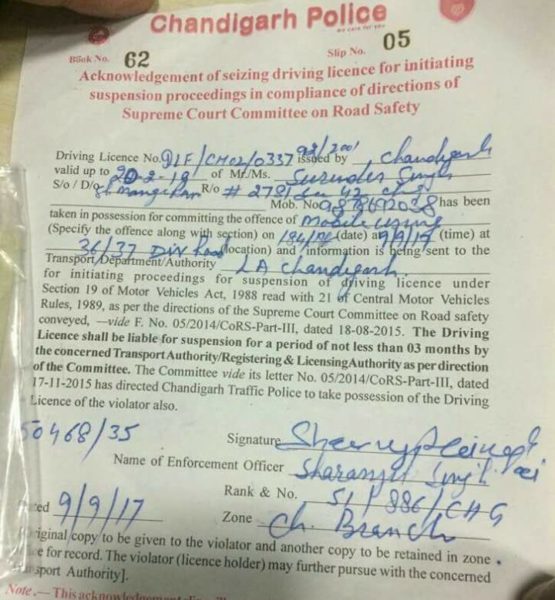 Chandigarh Police
we care for you
Book No. 62 Slip No. 05
Acknowledgement of seizing driving licence for initiating
suspension proceedings in compliance of directions of
Supreme Court Committee on Road Safety
Driving Licence No. DLF/CH02/0337 issued by Chandigarh
valid up to 20-2-18 of Mr/Ms. Surinder Singh
S/o / D/o R/o # 2781 Sec 42 Chd
Mob. No. has been
taken in possession for committing the offence of Mobile using
(Specify the offence along with section) on (date) 9/9/17 (time) at
36/37 Div Road (location) and information is being sent to the
Transport/Department/Authority LA Chandigarh.
for initiating proceedings for suspension of driving licence under
Section 19 of Motor Vehicles Act, 1988 read with 21 of Central Motor Vehicles
Rules, 1989, as per the directions of the Supreme Court Committee on Road safety
conveyed, —vide F. No. 05/2014/CoRS-Part-III, dated 18-08-2015. The Driving
Licence shall be liable for suspension for a period of not less than 03 months by
the concerned Transport Authority/Registering & Licensing Authority as per direction
of the Committee. The Committee vide its letter No. 05/2014/CoRS-Part-III, dated
17-11-2015 has directed Chandigarh Traffic Police to take possession of the Driving
Licence of the violator also.
50468/35 Signature
Name of Enforcement Officer Singh
Rank & No. SI/886/CHG
9/9/17 Zone Ch. Branch
original copy to be given to the violator and another copy to be retained in zone
for record. The violator (licence holder) may further pursue with the concerned
sport Authority].
Note.—This acknowledgement